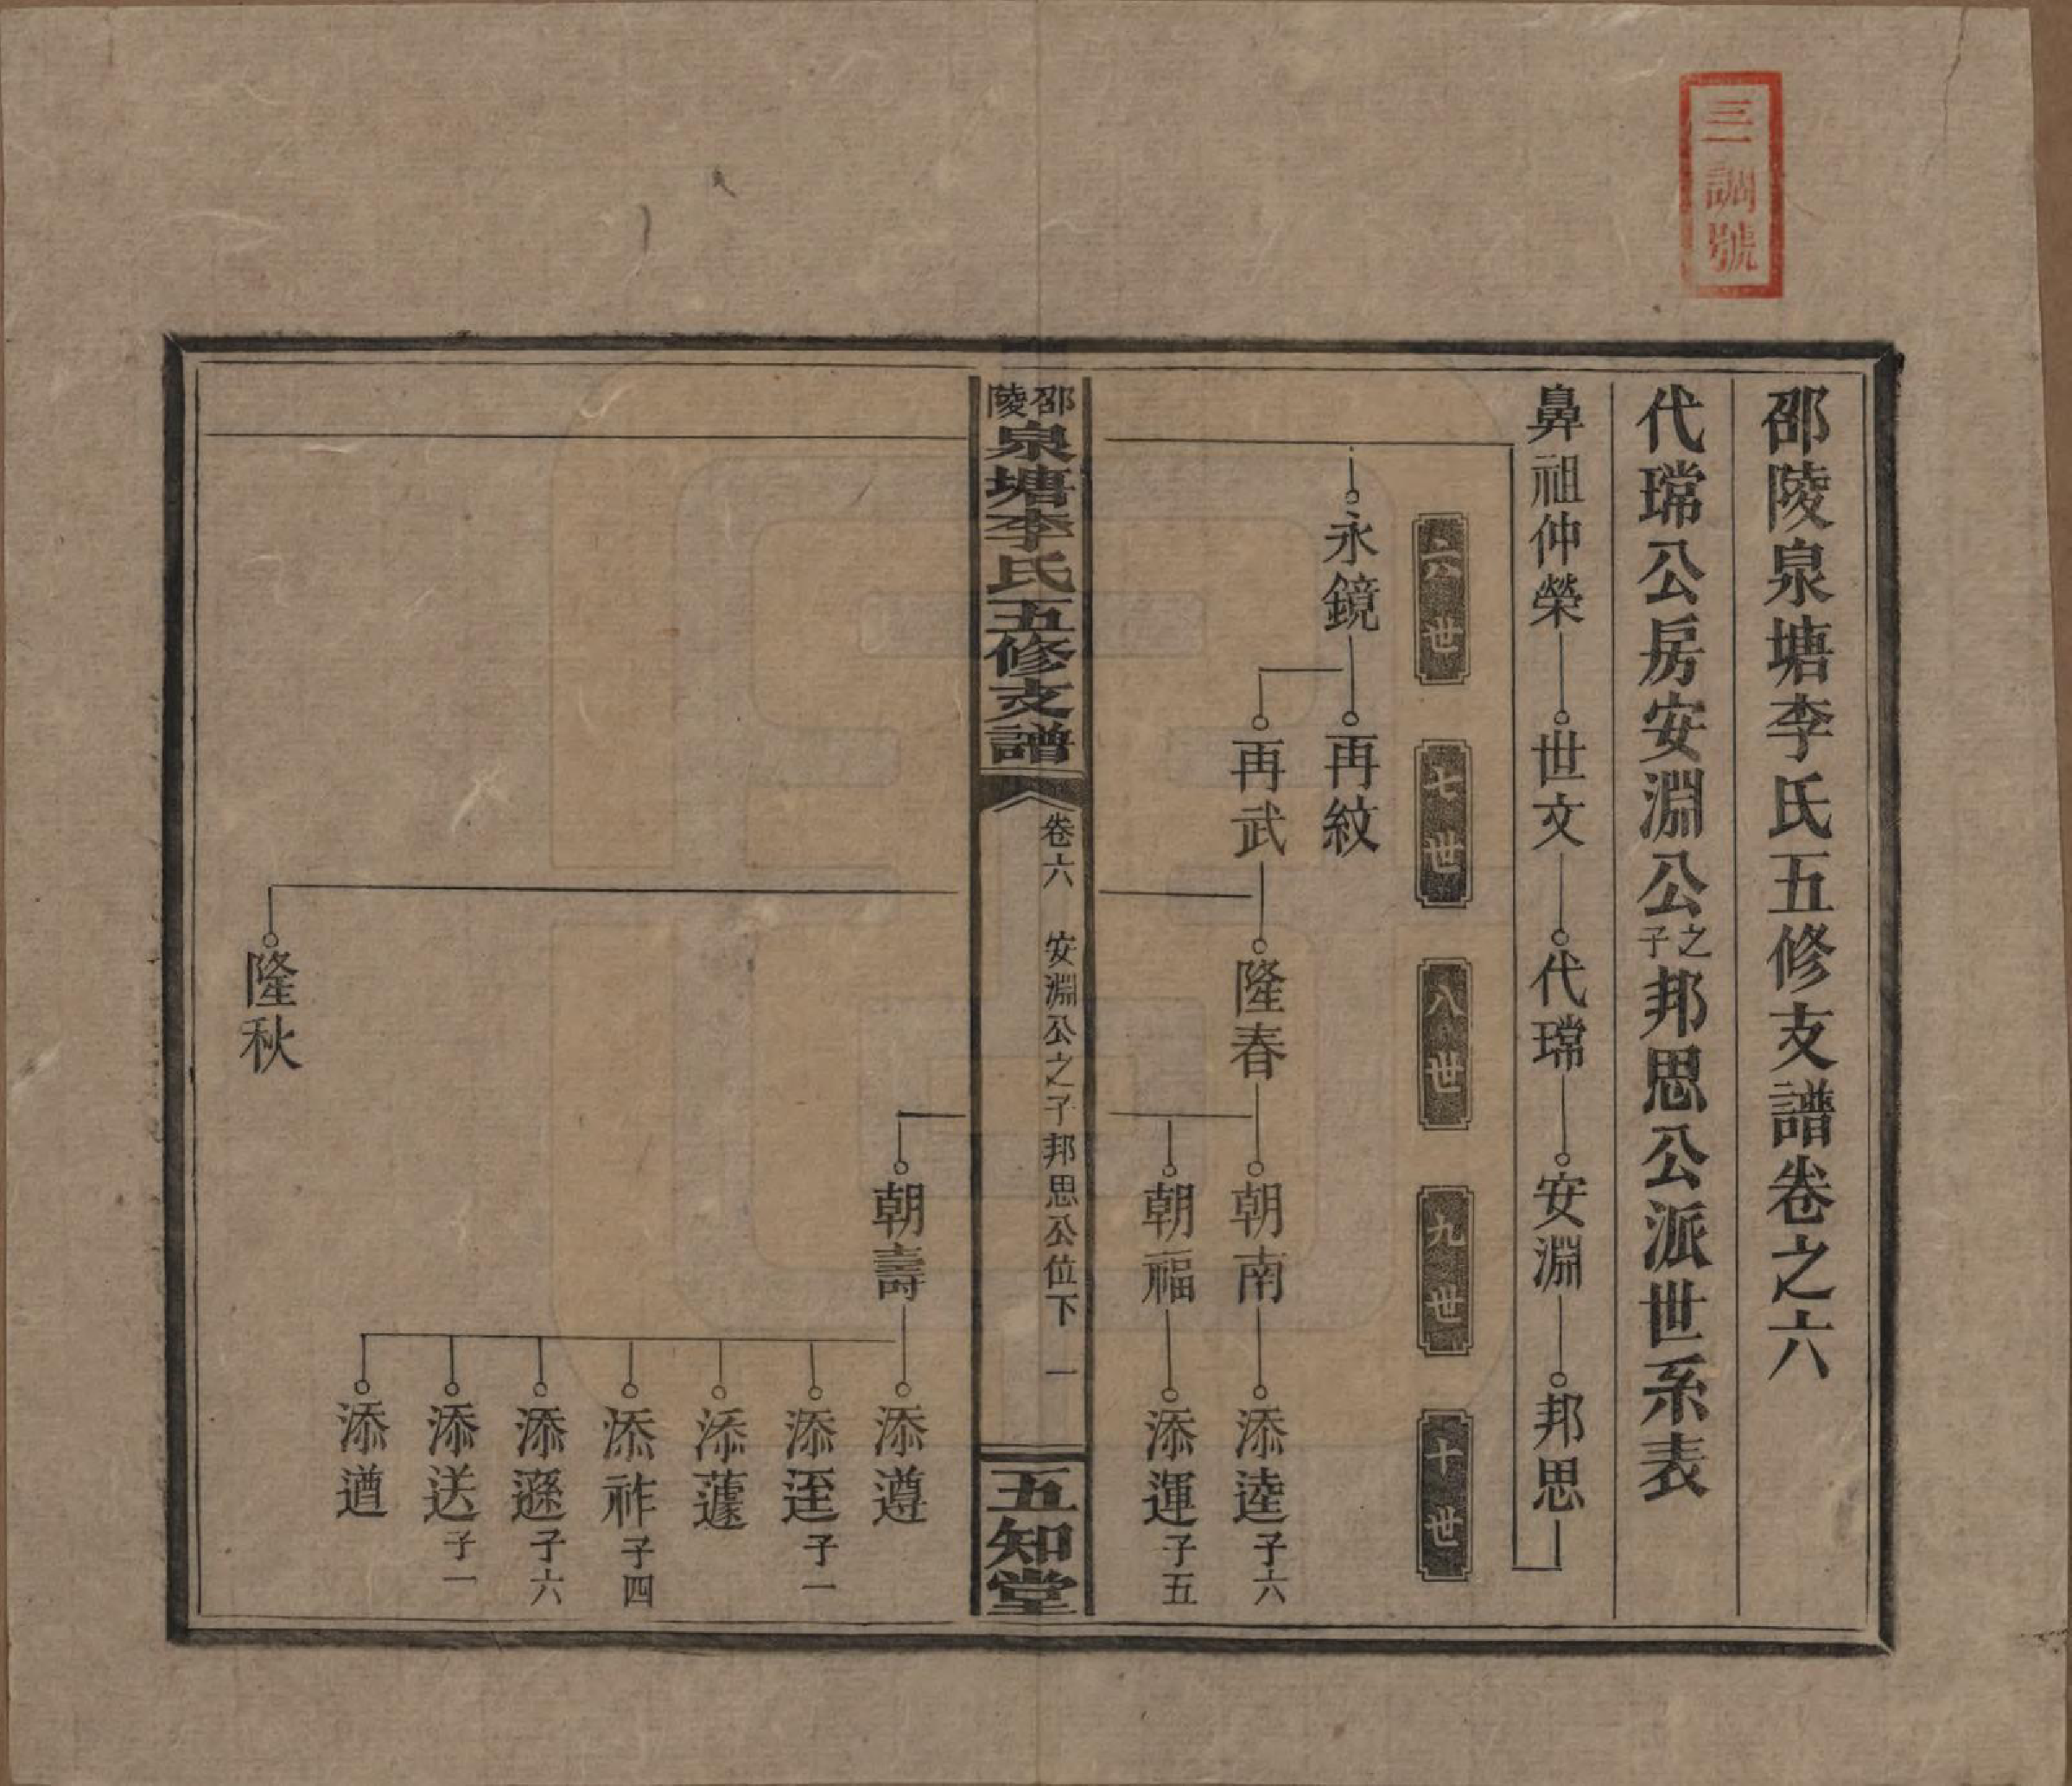 三一調號
邵陵泉塘李氏五修支譜卷之六
代瑺公房安淵公之子邦思公派世系表
鼻祖仲榮 世文 代瑺 安淵 邦思
六世 七世 八世 九世 十世
永鏡 再紋
再武 隆春 朝南 添逵子六
朝福 添運子五
邵陵泉塘李氏五修支譜 卷六 安淵公之子邦思公位下 一 五知堂
朝壽 添遵
添迬子一
添蘧
添祚子四
添遜子六
添送子一
添遒
隆秋